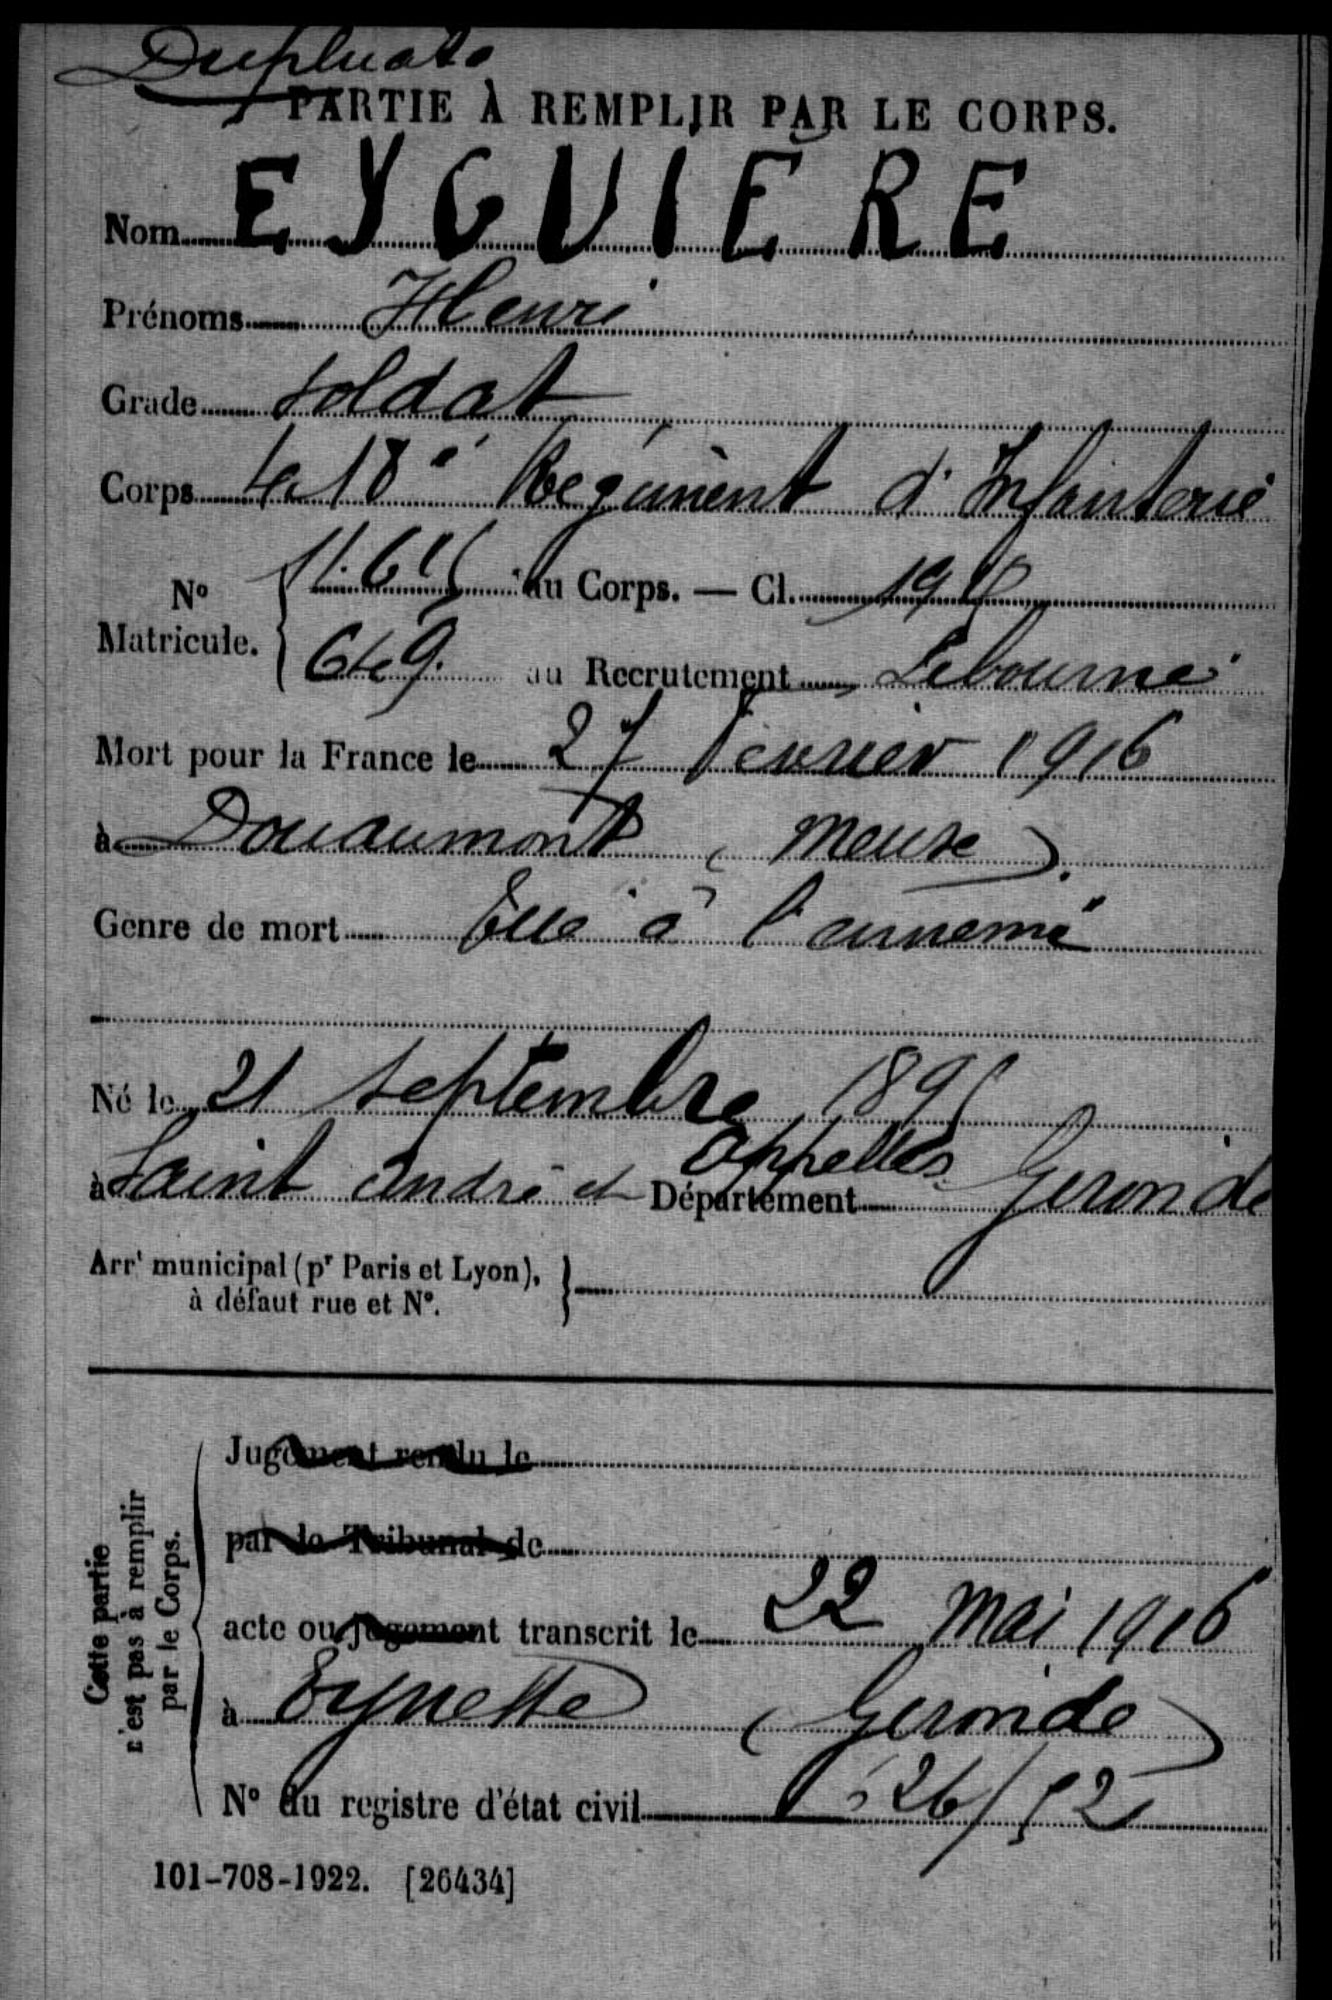 Duplicata
PARTIE À REMPLIR PAR LE CORPS.
Nom EYGUIERE
Prénoms Henri
Grade Soldat
Corps 418e Régiment d'Infanterie
No Matricule. { 11.615 au Corps. — Cl. 1915
649. au Recrutement Libourne
Mort pour la France le 27 février 1916
à Douaumont (Meuse).
Genre de mort Tué à l'ennemi
Né le 21 septembre 1895
à Saint André et Appelles Département Gironde
Arrt municipal (pr Paris et Lyon), à défaut rue et No. }
Cette partie n'est pas à remplir par le Corps.
Jugement rendu le
par le Tribunal de
acte ou jugement transcrit le 22 mai 1916
à Eynesse (Gironde)
No du registre d'état civil 526/52
101-708-1922. [26434]